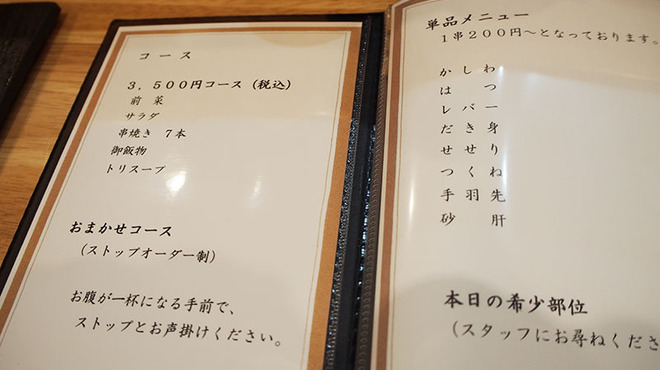 コース
３，５００円コース（税込）
前菜
サラダ
串焼き ７本
御飯物
トリスープ
おまかせコース
（ストップオーダー制）
お腹が一杯になる手前で、
ストップとお声掛けください。
単品メニュー
１串２００円～となっております。
かしわ
はつ
レバー
だき身
せせり
つくね
手羽先
砂肝
本日の希少部位
（スタッフにお尋ねくださ